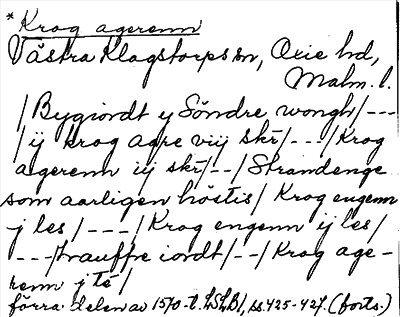 * Krog agerenn
Västra Klagstorps sn, Oxie hd,
Malm. l.
/ Bygiordt y Söndre wongh / ---
/ ij krog agre viij skr̄ / --- / Krog
agerenn iij skr̄ / -- / Strandenge
som aarligen höstis / Krog engenn
j les / --- / Krog engenn ij les /
--- / trauffre iordt / -- / Krog age-
renn j tē /
förra delen av 1570-t. LSLB1, ss. 425-427. (forts.)